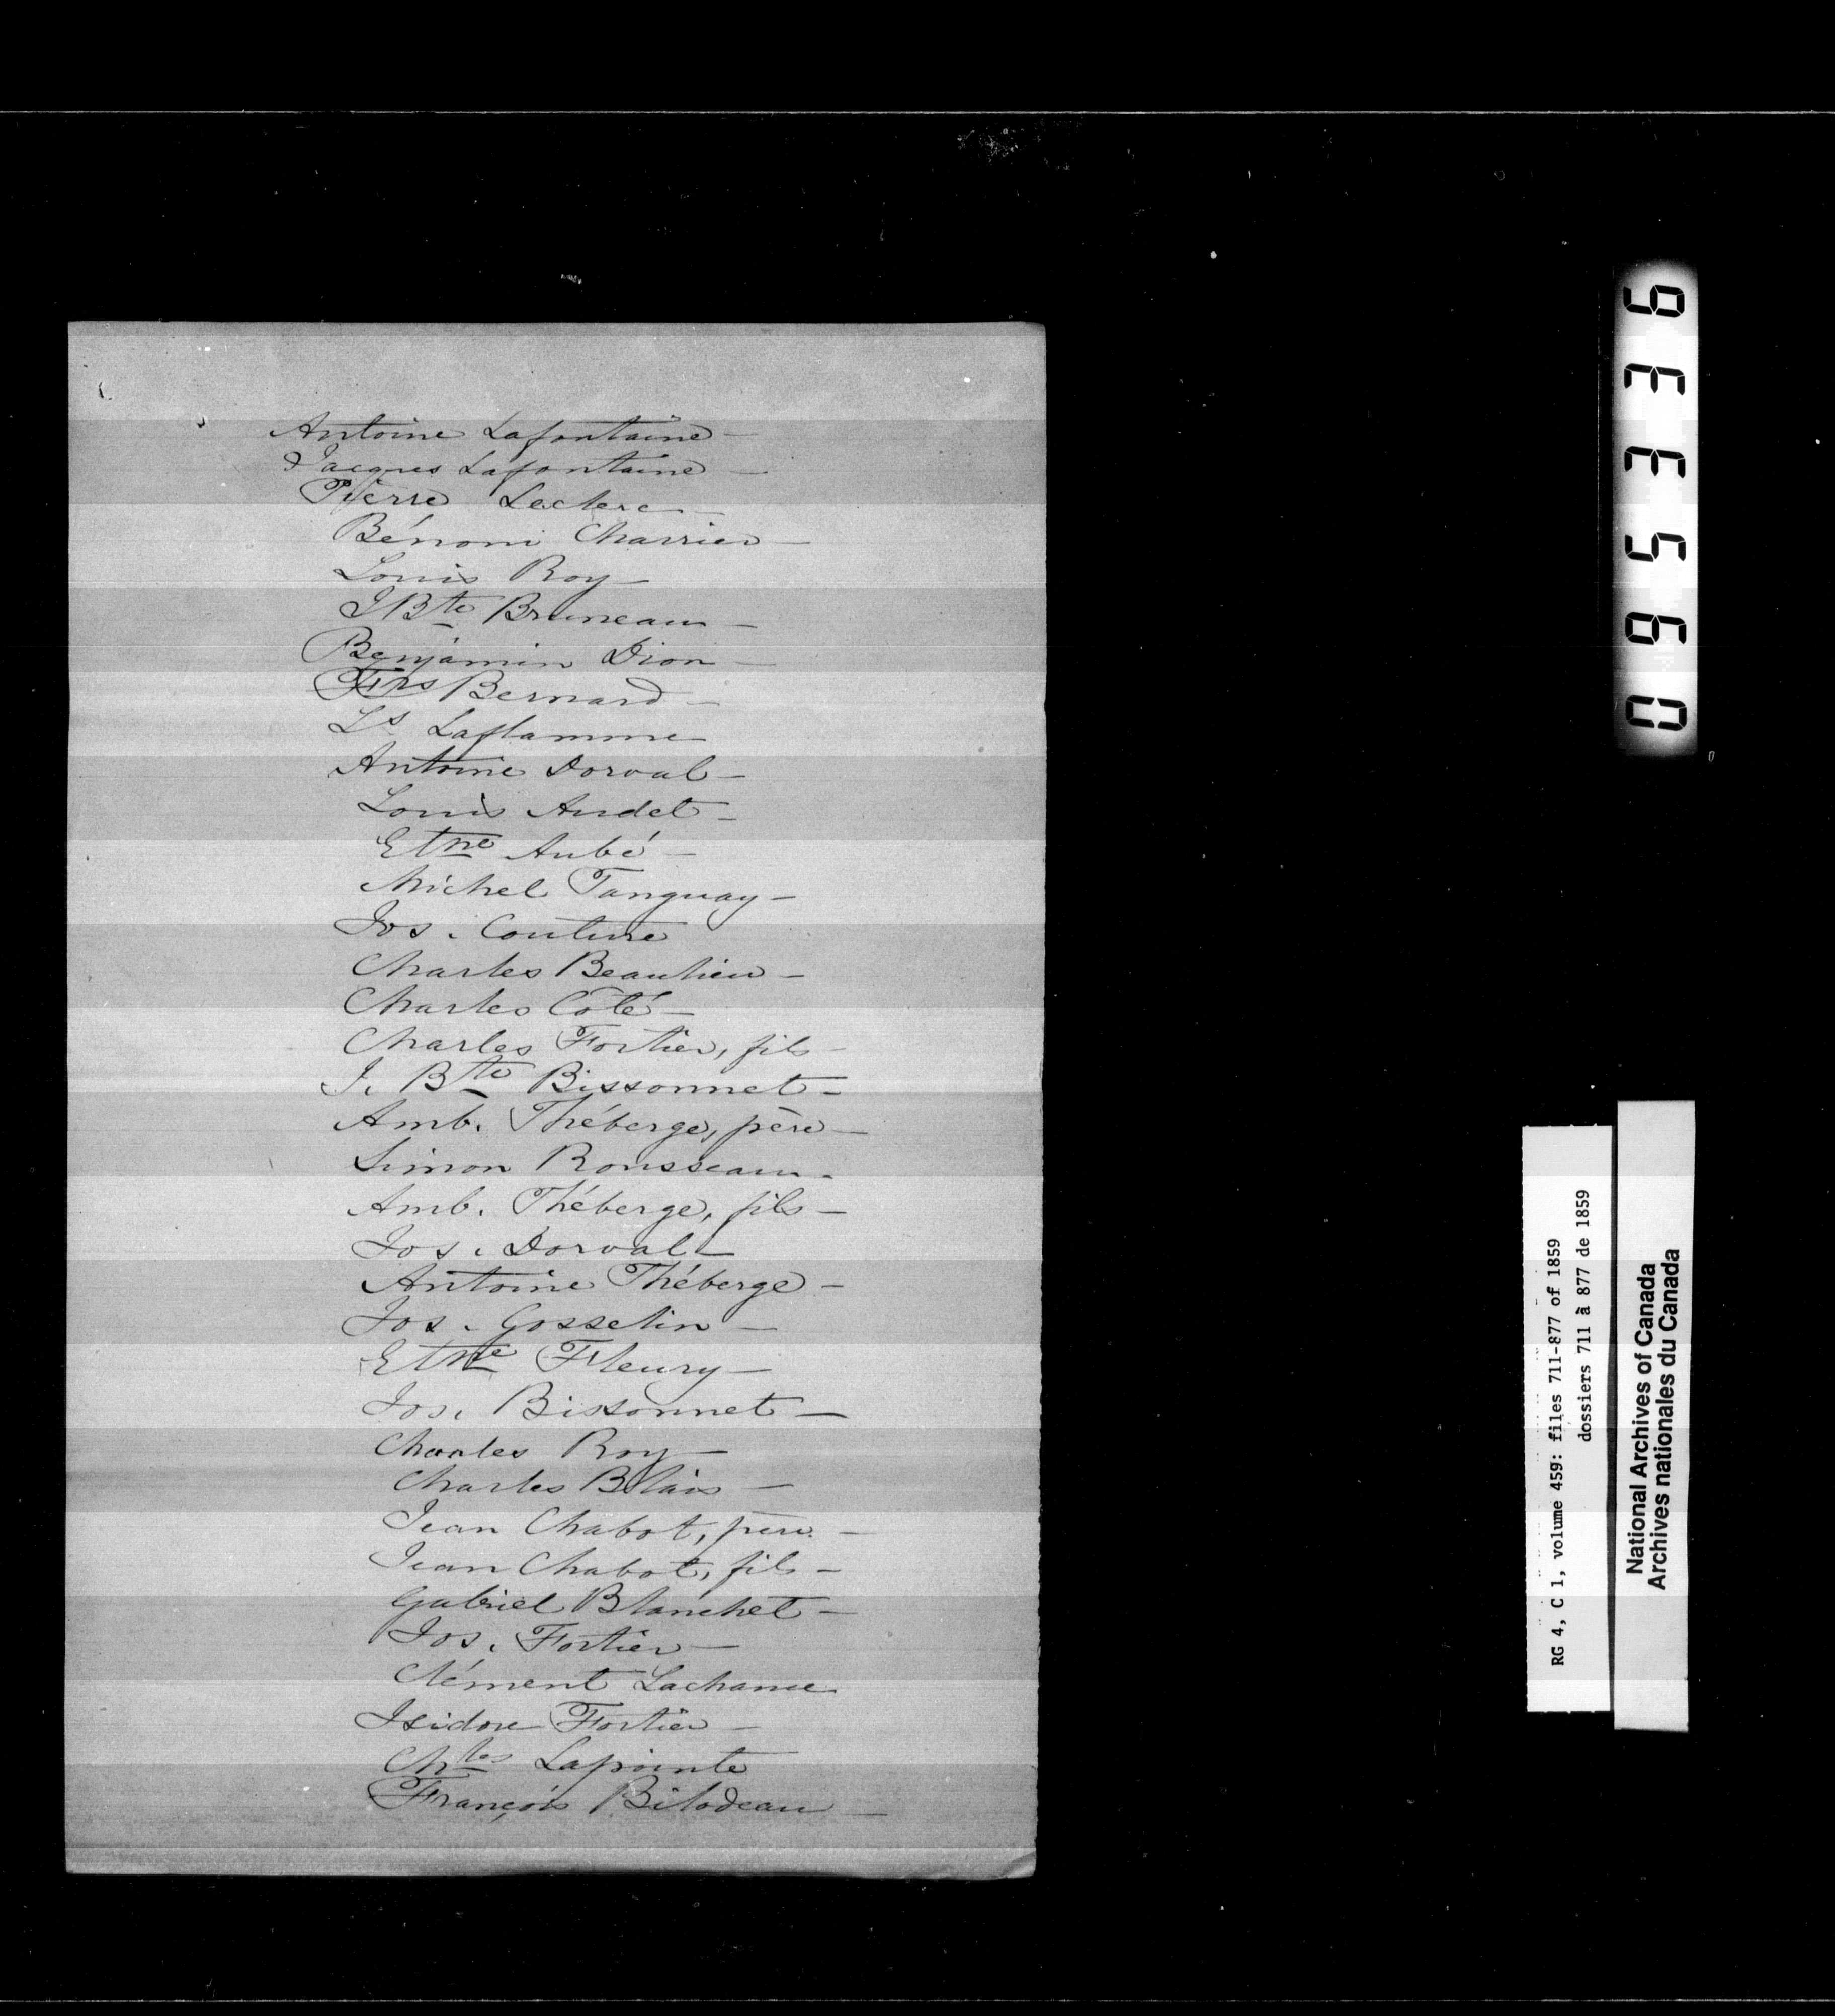 Antoine Lafontaine -
Jacques Lafontaine -
Pierre Leclerc -
Bénoni Charrier -
Louis Roy -
J Bte Bruneau -
Benjamin Dion -
Frs Bernard -
Ls Laflamme
Antoine Dorval -
Louis Audet -
Etne Aubé -
Michel Tanguay -
Jos. Couture
Charles Beaulieu -
Charles Côté -
Charles Fortier, fils -
J. Bte Bissonnet -
Amb. Théberge, père -
Simon Rousseau -
Amb. Théberge, fils -
Jos. Dorval -
Antoine Théberge -
Jos. Gosselin -
Etne Fleury -
Jos. Bissonnet -
Charles Roy -
Charles Blais -
Jean Chabot, père. -
Jean Chabot, fils -
Gabriel Blanchet -
Jos. Fortier -
Clément Lachance
Isidore Fortier -
Chles Lapointe
François Bilodeau -
095336
RG 4, C 1, volume 459: files 711-877 of 1859
dossiers 711 à 877 de 1859
National Archives of Canada
Archives nationales du Canada